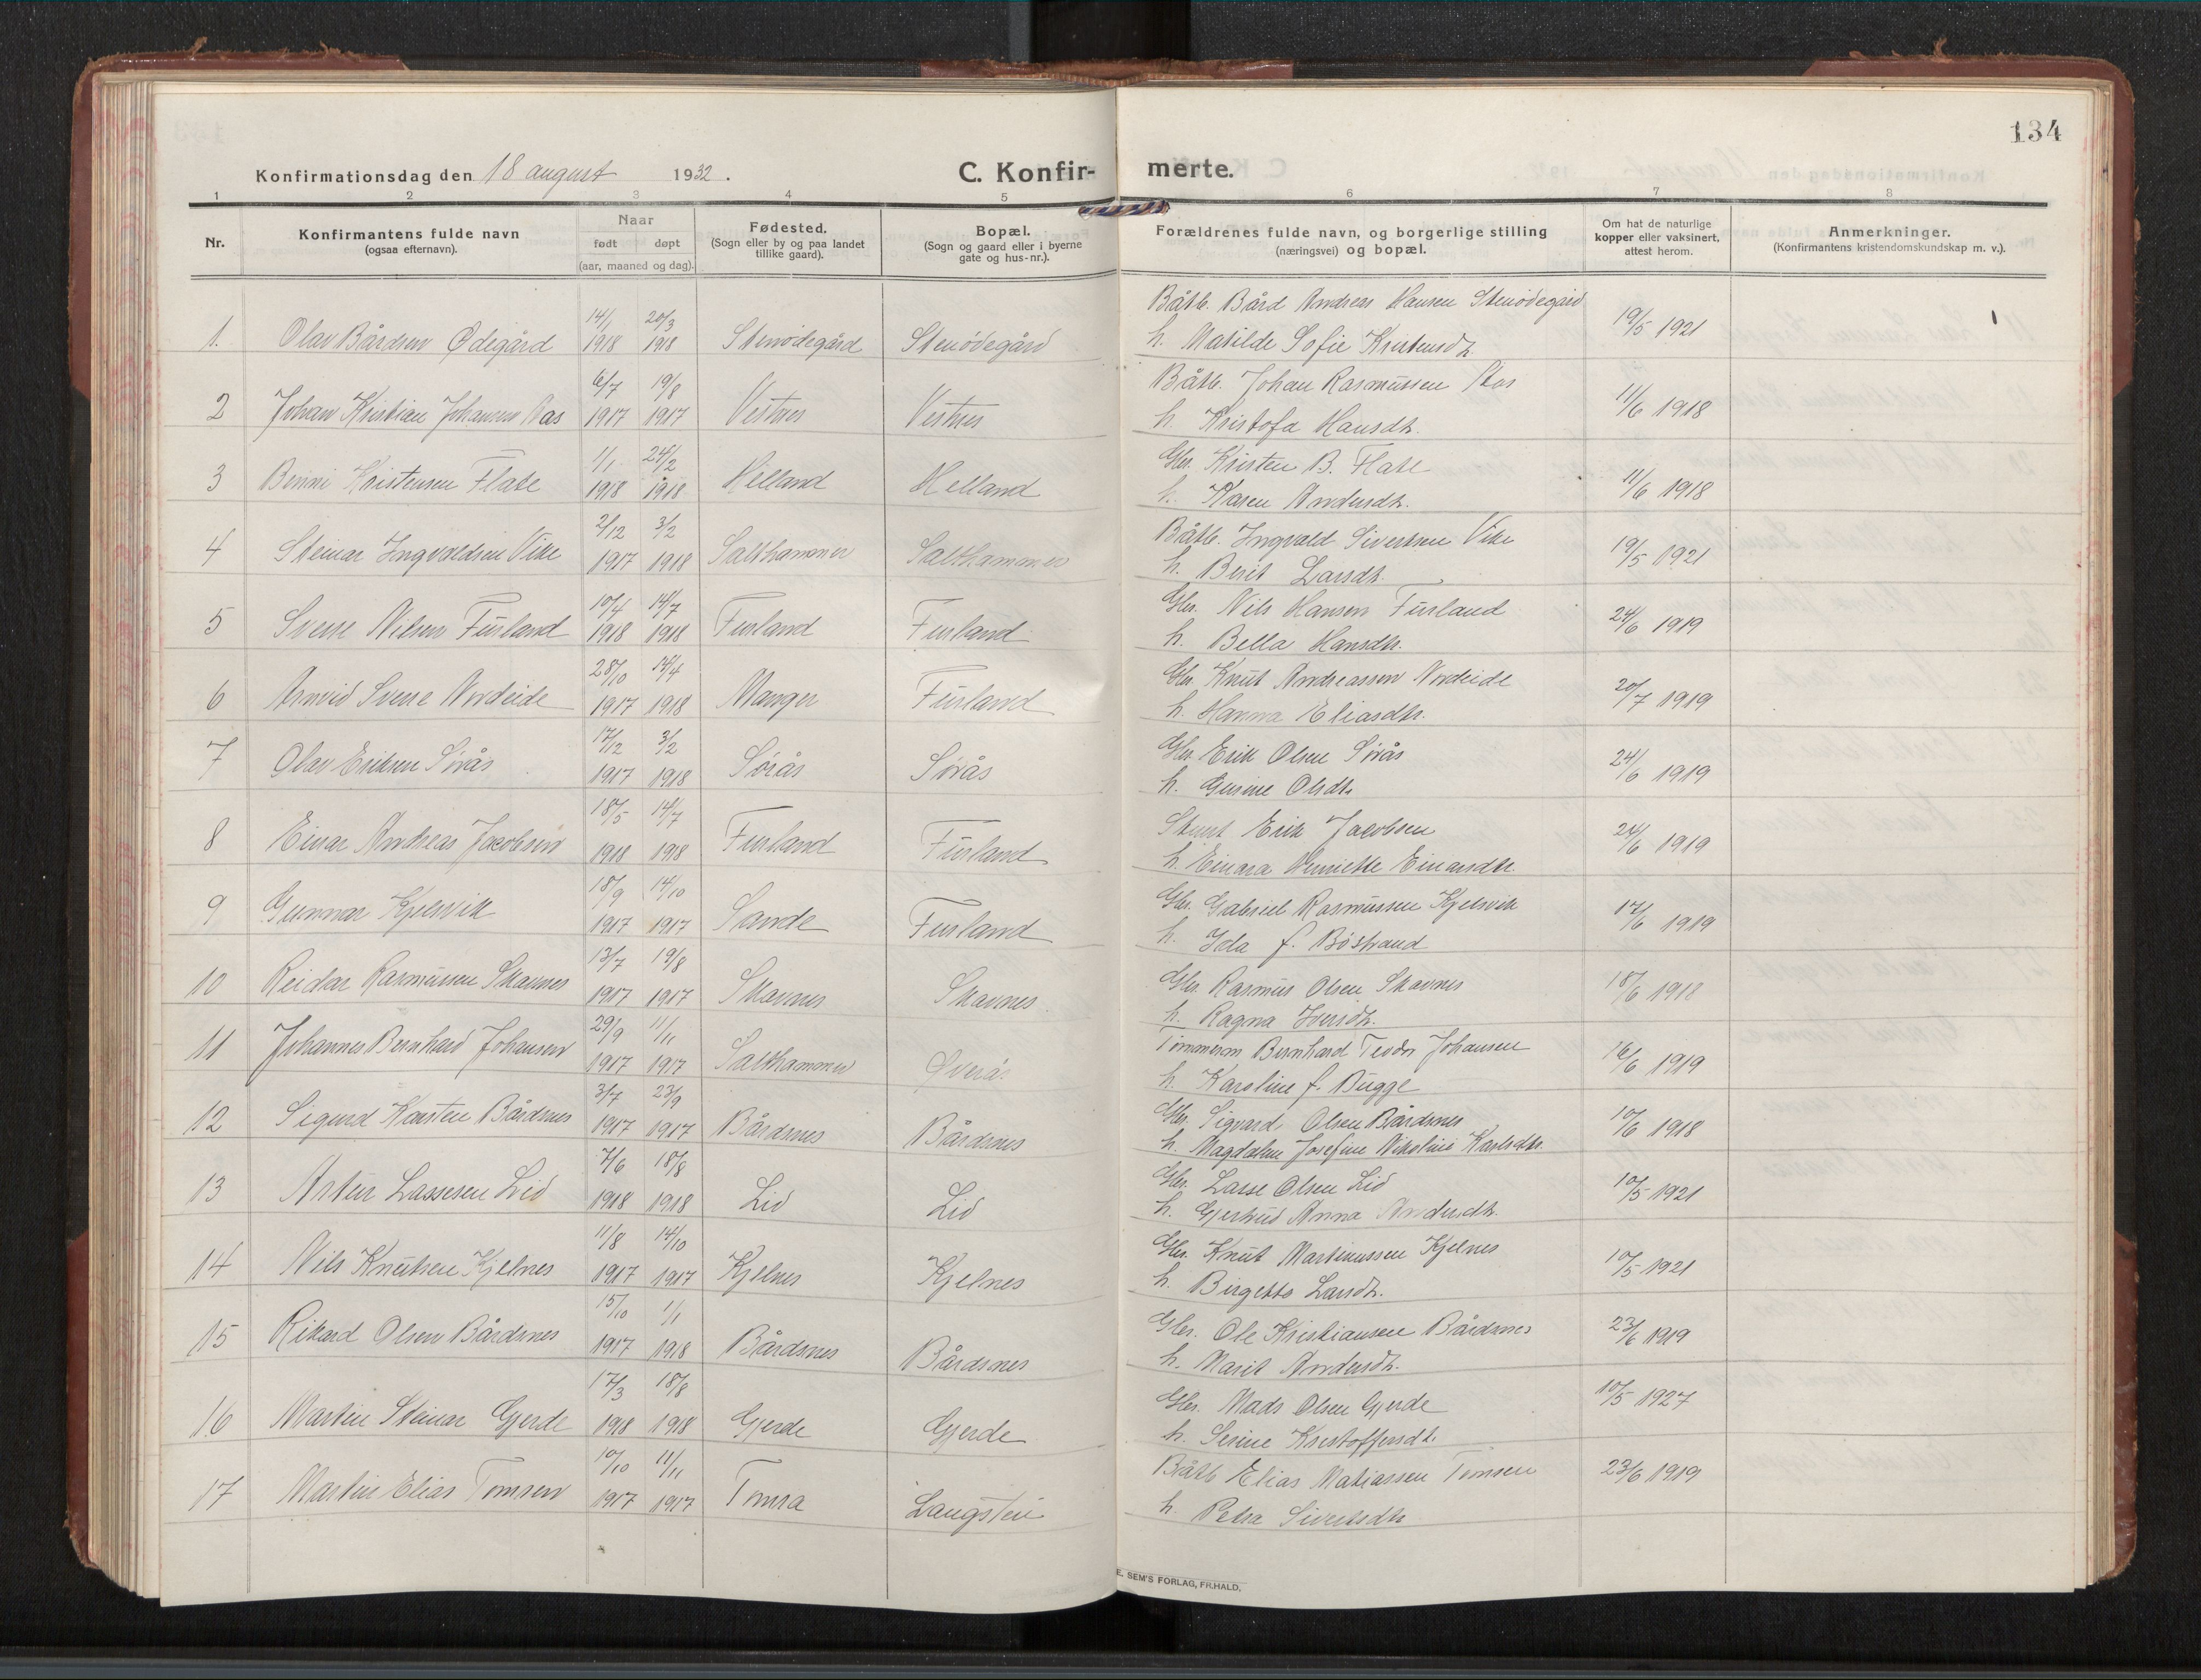 134
Konfirmationsdag den 18 august 1932.
C. Konfirmerte.
1 2 3 4 5 6 7 8
Nr.
Konfirmantens fulde navn
(ogsaa efternavn).
Naar
født døpt
(aar, maaned og dag).
Fødested.
(Sogn eller by og paa landet
tillike gaard).
Bopæl.
(Sogn og gaard eller i byerne
gate og hus-nr.).
Forældrenes fulde navn, og borgerlige stilling
(næringsvei) og bopæl.
Om hat de naturlige
kopper eller vaksinert,
attest herom.
Anmerkninger.
(Konfirmantens kristendomskundskap m. v.).
1. Olav Bårdsen Ødegård 14/1 1918 20/3 1918 Stenødegård Stenødegård
Båtb. Bård Andreas Hansen Stenødegård
h. Matilde Sofie Kristensdtr. 19/5 1921
2 Johan Kristian Johansen Aas 6/7 1917 19/8 1917 Vestnes Vestnes
Båtb. Johan Rasmussen Aas
h. Kristofa Hansdtr. 11/6 1918
3 Benni Kristensen Flate 1/1 1918 24/2 1918 Helland Helland
Gbr. Kristen B. Flate
h. Karen Andersdtr. 11/6 1918
4 Steinar Ingvaldsen Vike 2/12 1917 3/2 1918 Salthammer Salthammer
Båtb. Ingvald Sivertsen Vike
h. Berit Larsdtr. 19/5 1921
5 Sverre Nilsen Furland 10/4 1918 14/7 1918 Furland Furland
Gbr. Nils Hansen Furland
h. Bella Hansdtr. 24/6 1919
6 Arnvid Sverre Nordeide 28/10 1917 14/4 1918 Manger Furland
Gbr. Knut Andreassen Nordeide
h. Hanna Eliasdtr. 20/7 1919
7 Olav Eriksen Sørås 17/12 1917 3/2 1918 Sørås Sørås
Gbr. Erik Olsen Sørås
h. Gurine Olsdtr. 24/6 1919
8 Einar Andreas Jacobsen 18/5 1918 14/7 1918 Furland Furland
Erik Jacobsen
h. Einara Henriette Einarsdtr. 24/6 1919
9 Gunnar Kjelsvik 18/9 1917 14/10 1917 Sande Furland
Gbr. Gabriel Rasmussen Kjelsvik
h. Ida f. Bøstrand 17/6 1919
10 Reidar Rasmussen Skavnes 13/7 1917 19/8 1917 Skavnes Skavnes
Gbr. Rasmus Olsen Skavnes
h. Ragna Iversdtr. 18/6 1918
11 Johannes Bernhard Johansen 29/9 1917 11/11 1917 Salthammer Øverå
Tømmerm Bernhard Teodor Johansen
h. Karoline f. Bugge 16/6 1919
12 Sigurd Karsten Bårdsnes 3/7 1917 23/9 1917 Bårdsnes Bårdsnes
Gbr. Sigvard Olsen Bårdsnes
h. Magdalene Josefine Nikoline Karlsdtr. 10/6 1918
13 Artur Lassesen Lid 7/6 1918 18/8 1918 Lid Lid
Gbr. Lasse Olsen Lid
h. Gjertrud Anna Andersdtr. 10/5 1921
14 Nils Knutsen Kjelnes 11/8 1917 14/10 1917 Kjelnes Kjelnes
Gbr. Knut Martinussen Kjelnes
h. Birgitte Larsdtr. 10/5 1921
15 Rikard Olsen Bårdsnes 15/10 1917 1/1 1918 Bårdsnes Bårdsnes
Gbr. Ole Kristiansen Bårdsnes
h. Marit Andersdtr. 23/6 1919
16 Martin Steinar Gjerde 17/3 1918 18/8 1918 Gjerde Gjerde
Gbr. Mads Olsen Gjerde
h. Serine Kristoffersdtr. 10/5 1927
17 Martin Elias Tomren 10/10 1917 11/11 1917 Tomra Langstein
Båtb Elias Matiassen Tomren
h. Petra Sivertsdtr 23/6 1919
E. SEM'S FORLAG, FR.HALD.